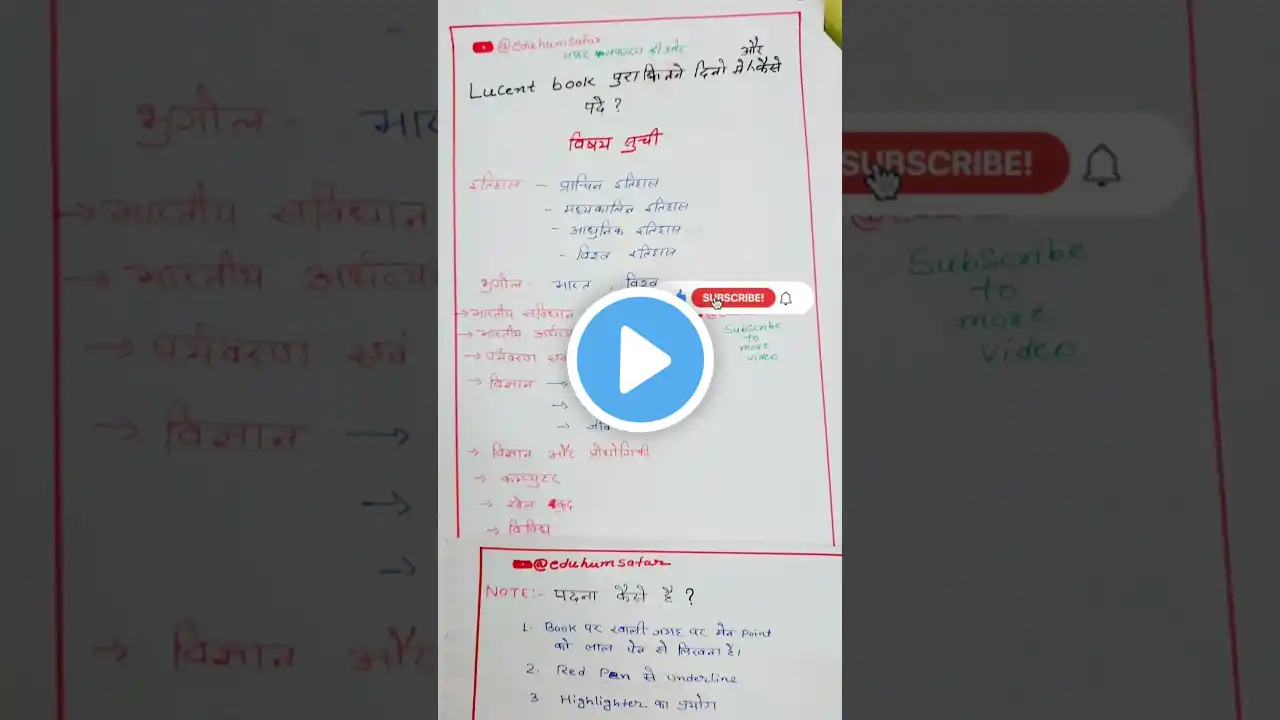 @eduhumsafar
सफर सफलता की ओर
और
Lucent book पुरा कितने दिनो मे कैसे
पढे ?
विषय सुची
इतिहास - प्राचिन इतिहास
- मध्यकालिन इतिहास
- आधुनिक इतिहास
- विश्व इतिहास
भुगोल - भारत , विश्व
→ भारतीय संविधान
SUBSCRIBE!
→ भारतीय अर्थव्य
→ पर्यावरण एवं
Subscribe
to
more
video
→ विज्ञान →
→
→ जीव
→ विज्ञान और प्रोद्योगिकी
→ कम्प्युटर
→ खेल कुद
→ विविध
@eduhumsafar
NOTE:- पढना कैसे है ?
1. Book पर खाली जगह पर मेन Point
को लाल पेन से लिखना है।
2. Red Pen से underline
3 Highlighter का प्रयोग
भुगोल - भार
→ भारतीय संविधान
→ भारतीय अर्थव्य
→ पर्यावरण एवं
→ विज्ञान →
→
→
→ विज्ञान और
SUBSCRIBE!
Subscribe
to
more
video